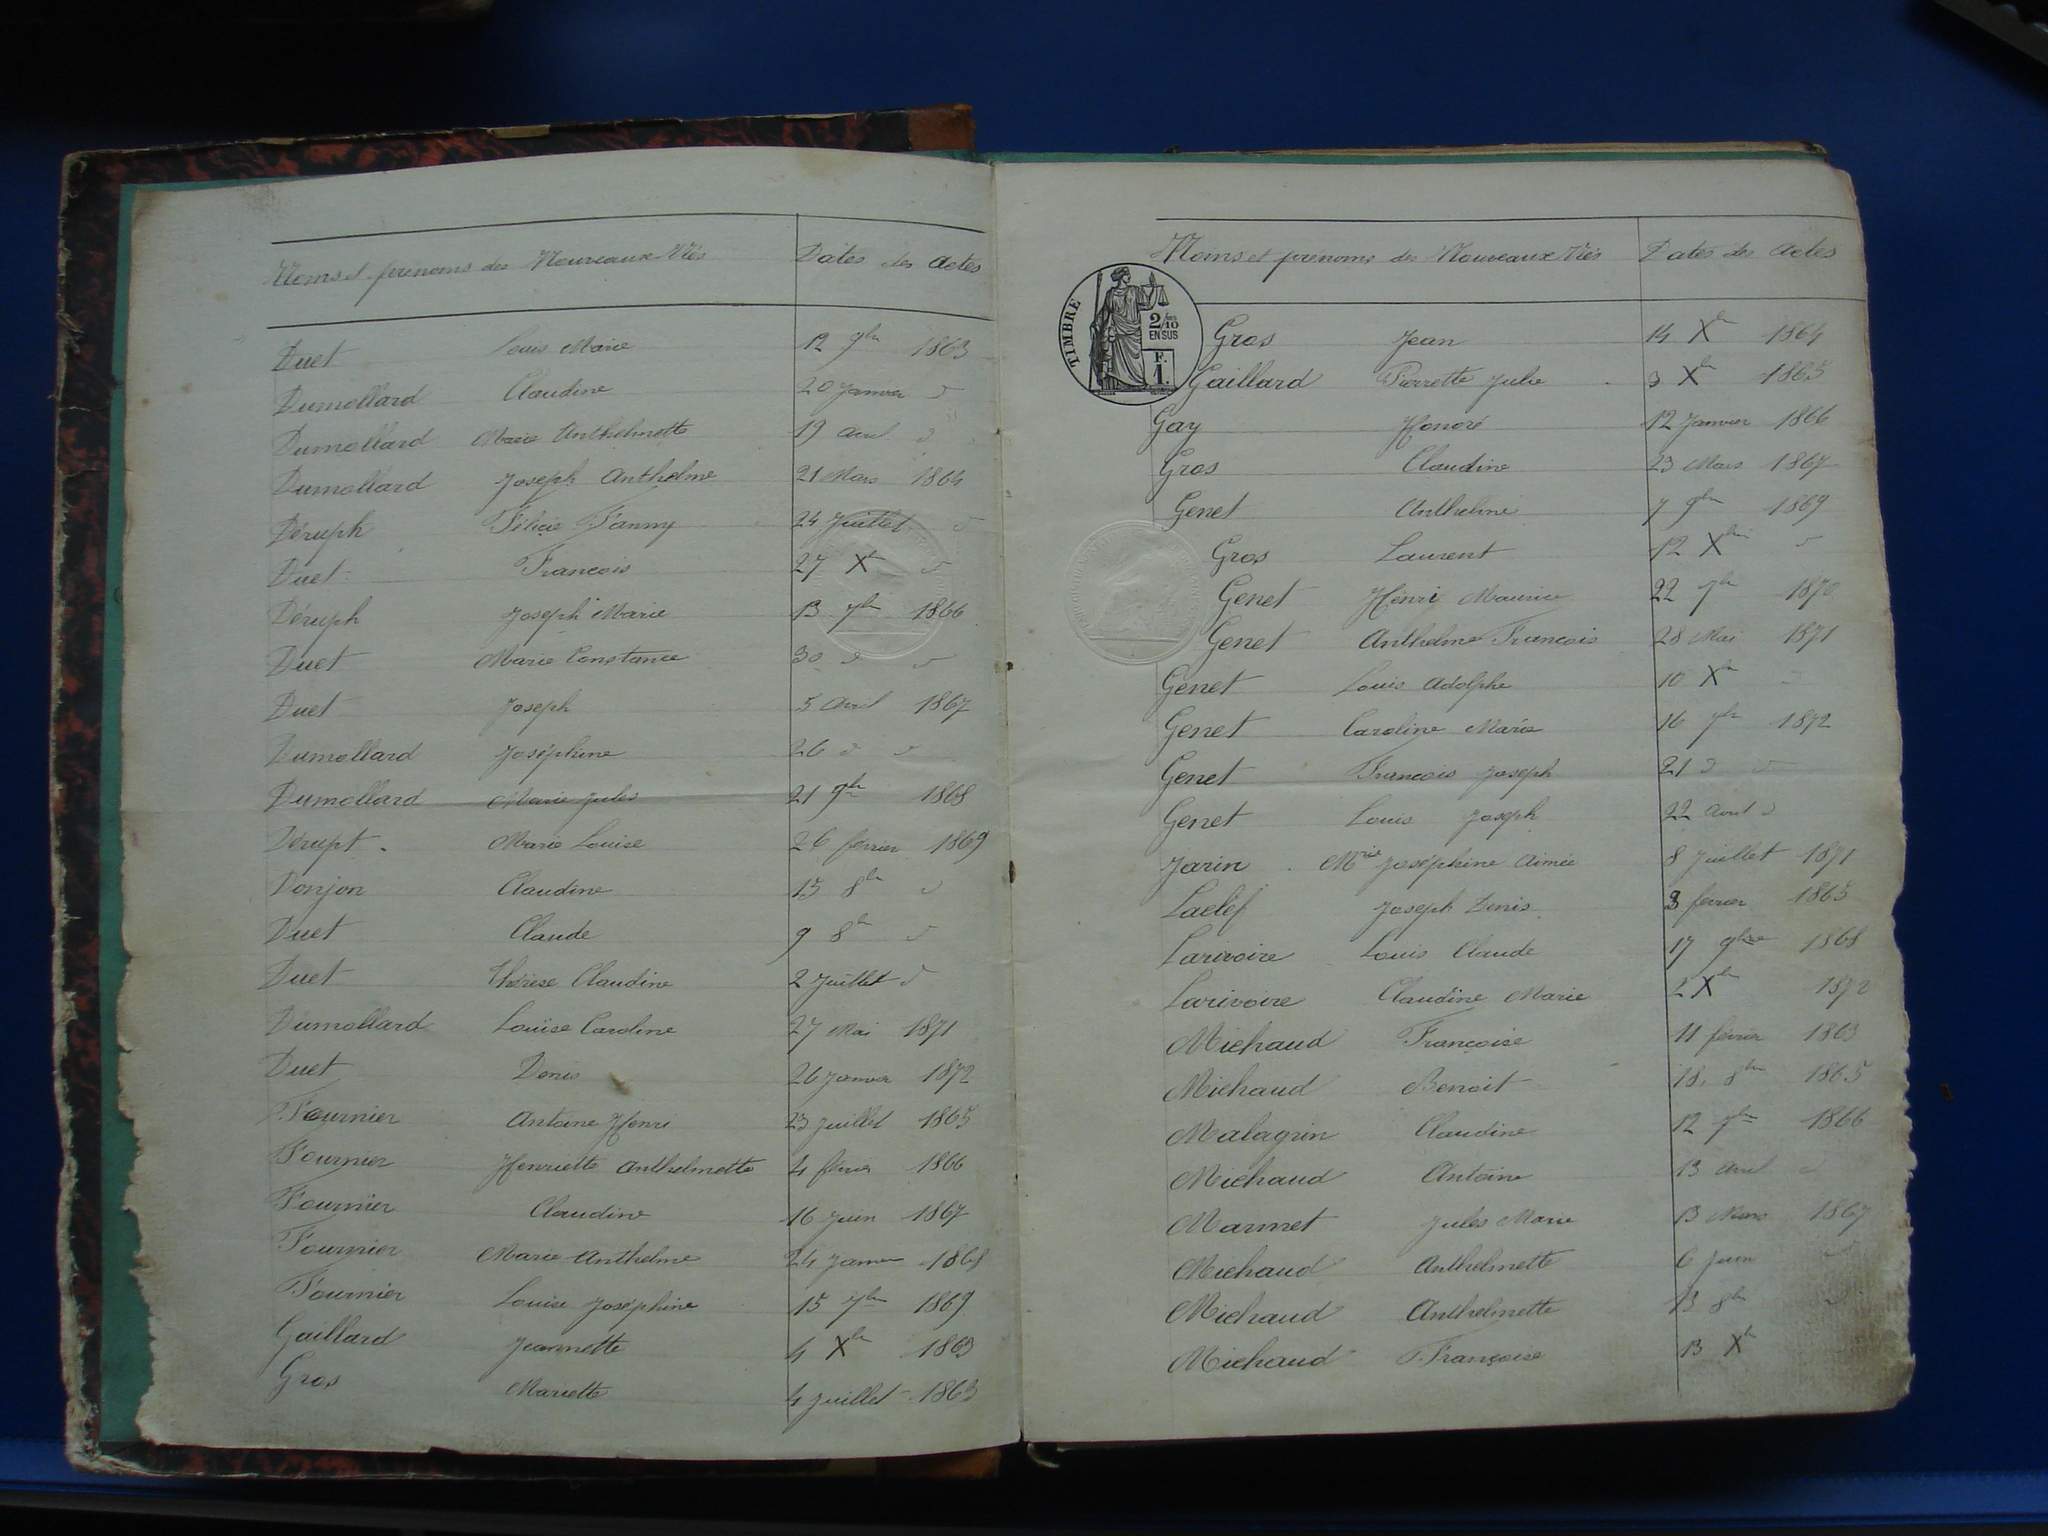 Noms et prénoms des Nouveaux Nés Dates des Actes
Duet Louis Marie 12 7bre 1863
Dumollard Claudine 20 Janvier d
Dumollard Marie Anthelmette 19 avril d
Dumollard Joseph Anthelme 21 Mars 1864
Déruph Félicie Fanny 24 Juillet d
Duet François 27 Xbre d
Déruph Joseph Marie 13 7bre 1866
Duet Marie Constance 30 d d
Duet Joseph 5 Avril 1867
Dumollard Joséphine 26 d d
Dumollard Marie Jules 21 9bre 1868
Dérupt Marie Louise 26 février 1869
Donjon Claudine 15 8bre d
Duet Claude 9 8bre d
Duet Thérèse Claudine 2 Juillet d
Dumollard Louise Caroline 27 Mai 1871
Duet Denis 26 Janvier 1872
Fournier Antoine Henri 23 Juillet 1865
Fournier Henriette Anthelmette 4 février 1866
Fournier Claudine 16 Juin 1867
Fournier Marie Anthelme 24 Janvier 1868
Fournier Louise Joséphine 15 7bre 1869
Gaillard Jeannette 4 Xbre 1863
Gros Mariette 4 Juillet 1863
Noms et prénoms des Nouveaux Nés Dates des Actes
TIMBRE
2/10
EN SUS
F.
1.
Gros Jean 14 Xbre 1864
Gaillard Pierrette Julie 3 Xbre 1865
Gay Honoré 12 Janvier 1866
Gros Claudine 23 Mars 1867
Genet Anthelme 7 9bre 1869
Gros Laurent 12 Xbre d
Genet Henri Maurice 22 7bre 1870
Genet Anthelme François 28 Mai 1871
Genet Louis Adolphe 10 Xbre
Genet Caroline Marie 16 7bre 1872
Genet François Joseph 21 d d
Genet Louis Joseph 22 avril d
Jarin Mrie Joséphine Aimée 8 Juillet 1871
Laclef Joseph Denis février 1865
Larivoire Louis Claude 17 9bre 1868
Larivoire Claudine Marie 2 Xbre 1872
Michaud Françoise 11 février 1863
Michaud Benoit 18 8bre 1865
Malagrin Claudine 12 7bre 1866
Michaud Antoine 13 avril d
Marmet Jules Marie 13 Mars 1867
Michaud Anthelmette 6 Juin d
Michaud Anthelmette 13 8bre d
Michaud Françoise 13 Xbre